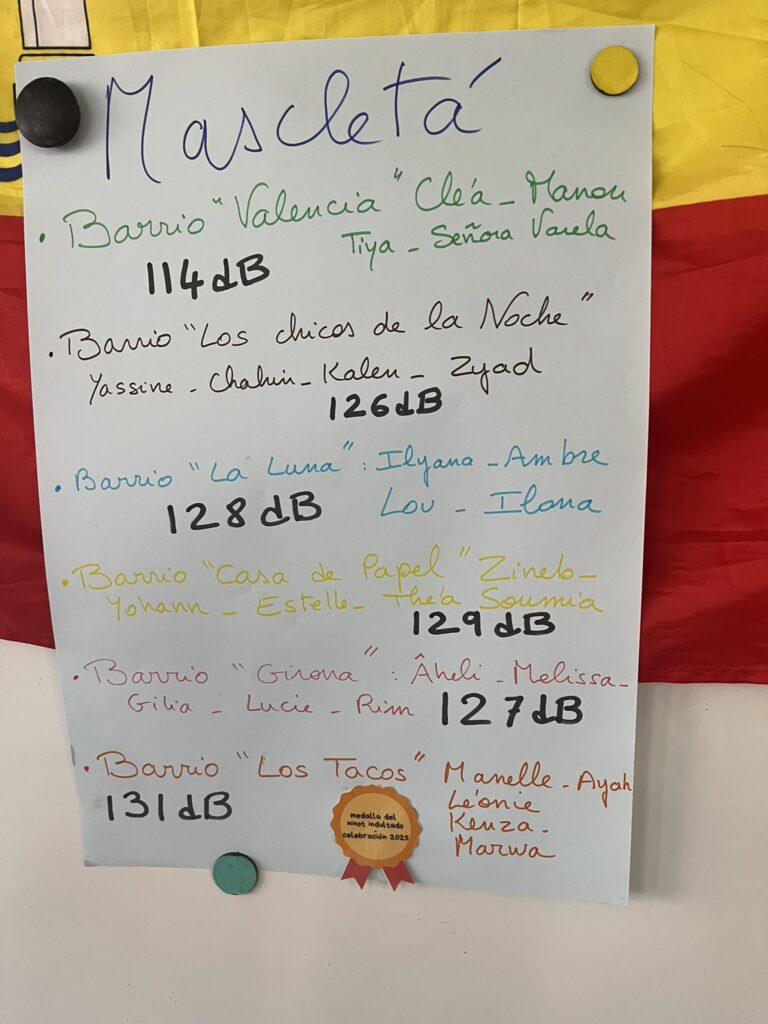 Mascletá
• Barrio "Valencia" Cléa - Manon
Tiya - Señora Varela
114 dB
• Barrio "Los chicos de la Noche"
Yassine - Chahin - Kalen - Zyad
126 dB
• Barrio "La Luna" : Ilyana - Ambre
128 dB Lou - Ilona
• Barrio "Casa de Papel" Zineb -
Yohann - Estelle - Théa Soumia
129 dB
• Barrio "Girona" : Âheli - Melissa -
Gilia - Lucie - Rim 127 dB
• Barrio "Los Tacos" Manelle - Ayah
131 dB Léonie
Kenza -
Marwa
medalla del
ninot indultado
-
celebración 2025